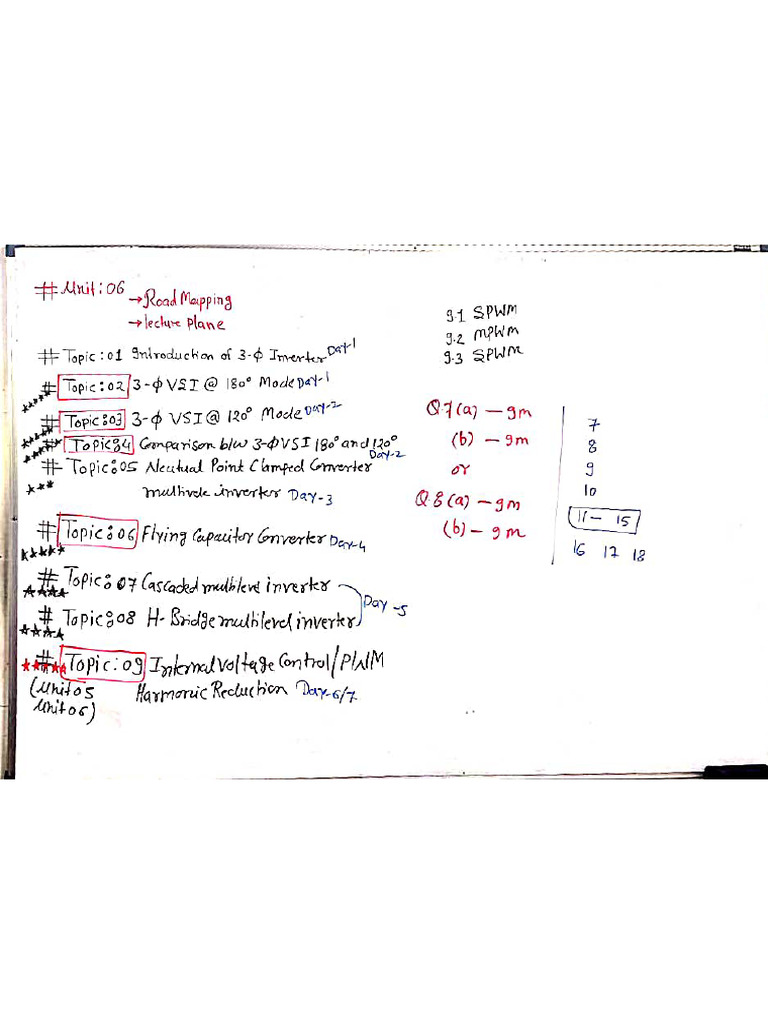 # Unit: 06
→ Road Mapping
→ lecture plane
# Topic: 01 Introduction of 3-ϕ Inverter Day-1
# Topic: 02 3-ϕ VSI @ 180° Mode Day-1
# Topic: 03 3-ϕ VSI @ 120° Mode Day-2
# Topic: 4 Comparison b/w 3-ϕ VSI 180° and 120°
Day-2
# Topic: 05 Neutual Point Clamped Converter
inverter Day-3
# Topic: 06 Flying Capacitor Converter Day-4
# Topic: 07 Cascaded multilevel inverter
Day-5
# Topic: 08 H-Bridge multilevel inverter
# Topic: 09 Internal Voltage Control/PWM
(Unit 05 Harmonic Reduction Day-6/7
Unit 06)
9.1 SPWM
9.2 MPWM
9.3 SPWM
Q.7 (a) — 9m
(b) — 9m
or
Q.8 (a) — 9m
(b) — 9m
7
8
9
10
11 — 15
16 17 18